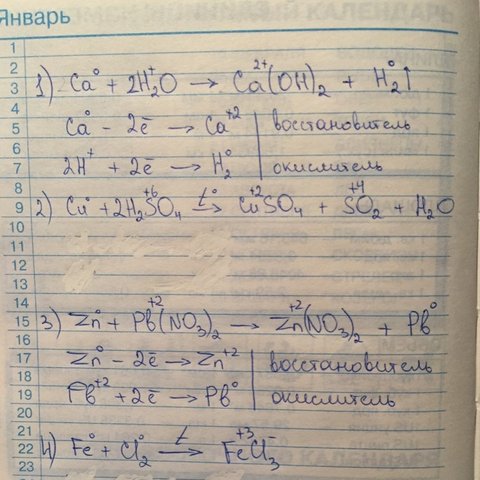 Январь
1
2
3 1) Ca⁰ + 2H₂⁺O → Ca²⁺(OH)₂ + H₂⁰↑
4
5 Ca⁰ - 2ē → Ca⁺² | восстановитель
6
7 2H⁺ + 2ē → H₂⁰ | окислитель
8
9 2) Cu⁰ + 2H₂S⁺⁶O₄ t°→ Cu⁺²SO₄ + S⁺⁴O₂ + H₂O
10
11
12
13
14
15 3) Zn⁰ + Pb⁺²(NO₃)₂ → Zn⁺²(NO₃)₂ + Pb⁰
16
17 Zn⁰ - 2ē → Zn⁺² | восстановитель
18
19 Pb⁺² + 2ē → Pb⁰ | окислитель
20
21
22 4) Fe⁰ + Cl₂⁰ t→ Fe⁺³Cl₃⁻
23